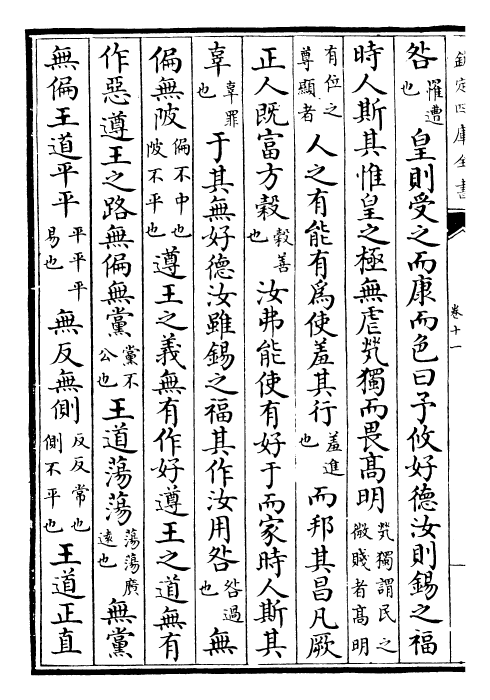 欽定四庫全書
卷十一
咎罹遭也皇則受之而康而色曰予攸好德汝則錫之福
時人斯其惟皇之極無虐煢獨而畏髙明煢獨謂民之微賤者髙明
有位之尊顯者人之有能有為使羞其行羞進也而邦其昌凡厥
正人既富方穀穀善也汝弗能使有好于而家時人斯其
辜辜罪也于其無好德汝雖錫之福其作汝用咎咎過也無
偏無陂偏不中也陂不平也遵王之義無有作好遵王之道無有
作惡遵王之路無偏無黨黨不公也王道蕩蕩蕩蕩廣逺也無黨
無偏王道平平平平平易也無反無側反反常也側不平也王道正直